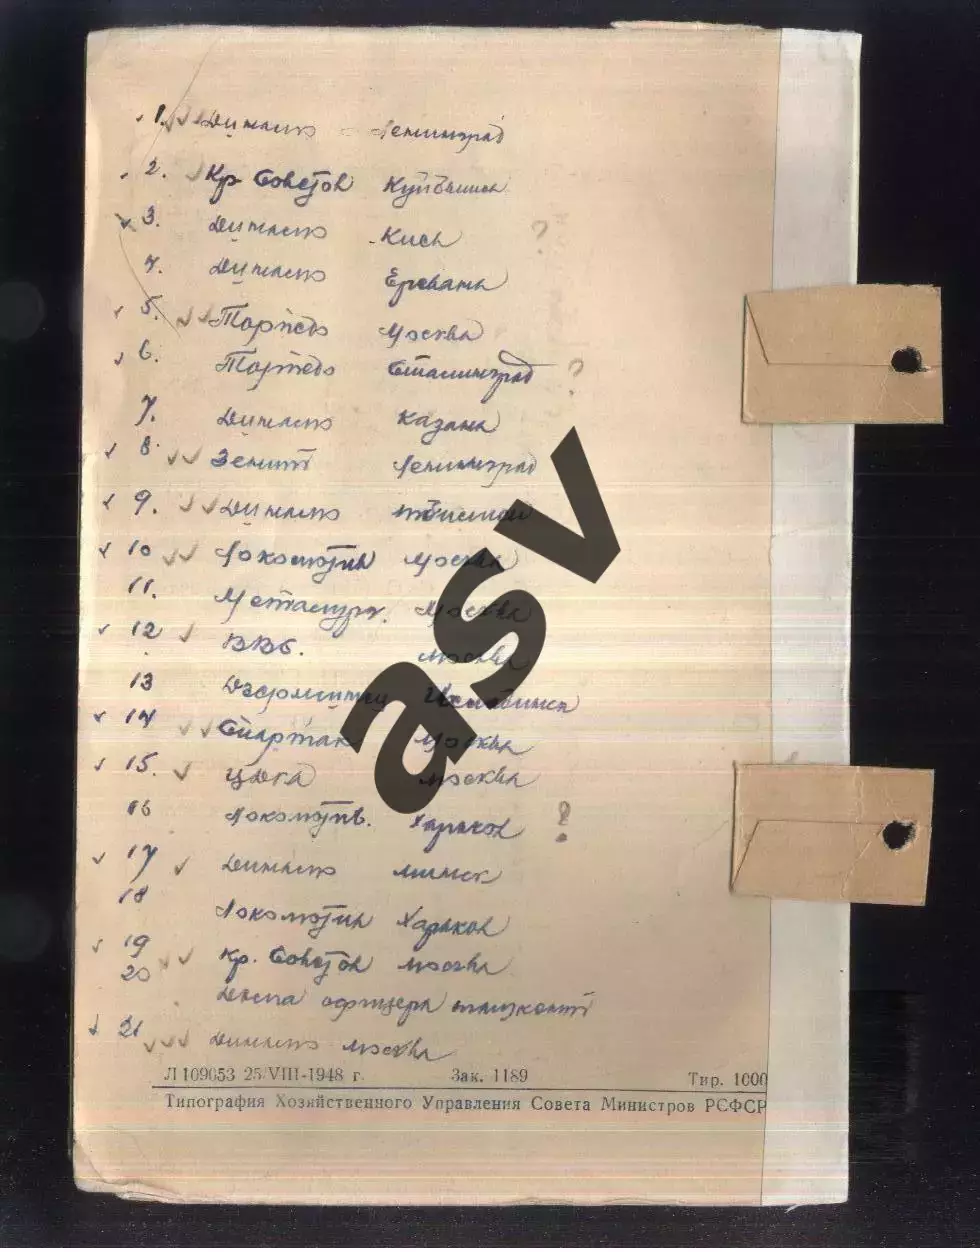 1. Динамо Ленинград
2. Кр Советов Куйбышев
3. Динамо Киев ?
4. Динамо Ереван
5. Торпедо Москва
6. Торпедо Сталинград ?
7. Динамо Казань
8. Зенит Ленинград
9. Динамо Тбилиси
10 Локомотив Москва
11. Металлург. Москва
12 ВВС. Москва
13 Дзержинец Челябинск
14 Спартак Москва
15. ЦДКА Москва
16 Локомотив. Харьков ?
17 Динамо Минск
18 Локомотив Харьков
19 Кр. Советов Москва
20 Дома офицера Ташкент
21 Динамо Москва
asv
Л 109053 25/VIII-1948 г. Зак. 1189 Тир. 1000
Типография Хозяйственного Управления Совета Министров РСФСР